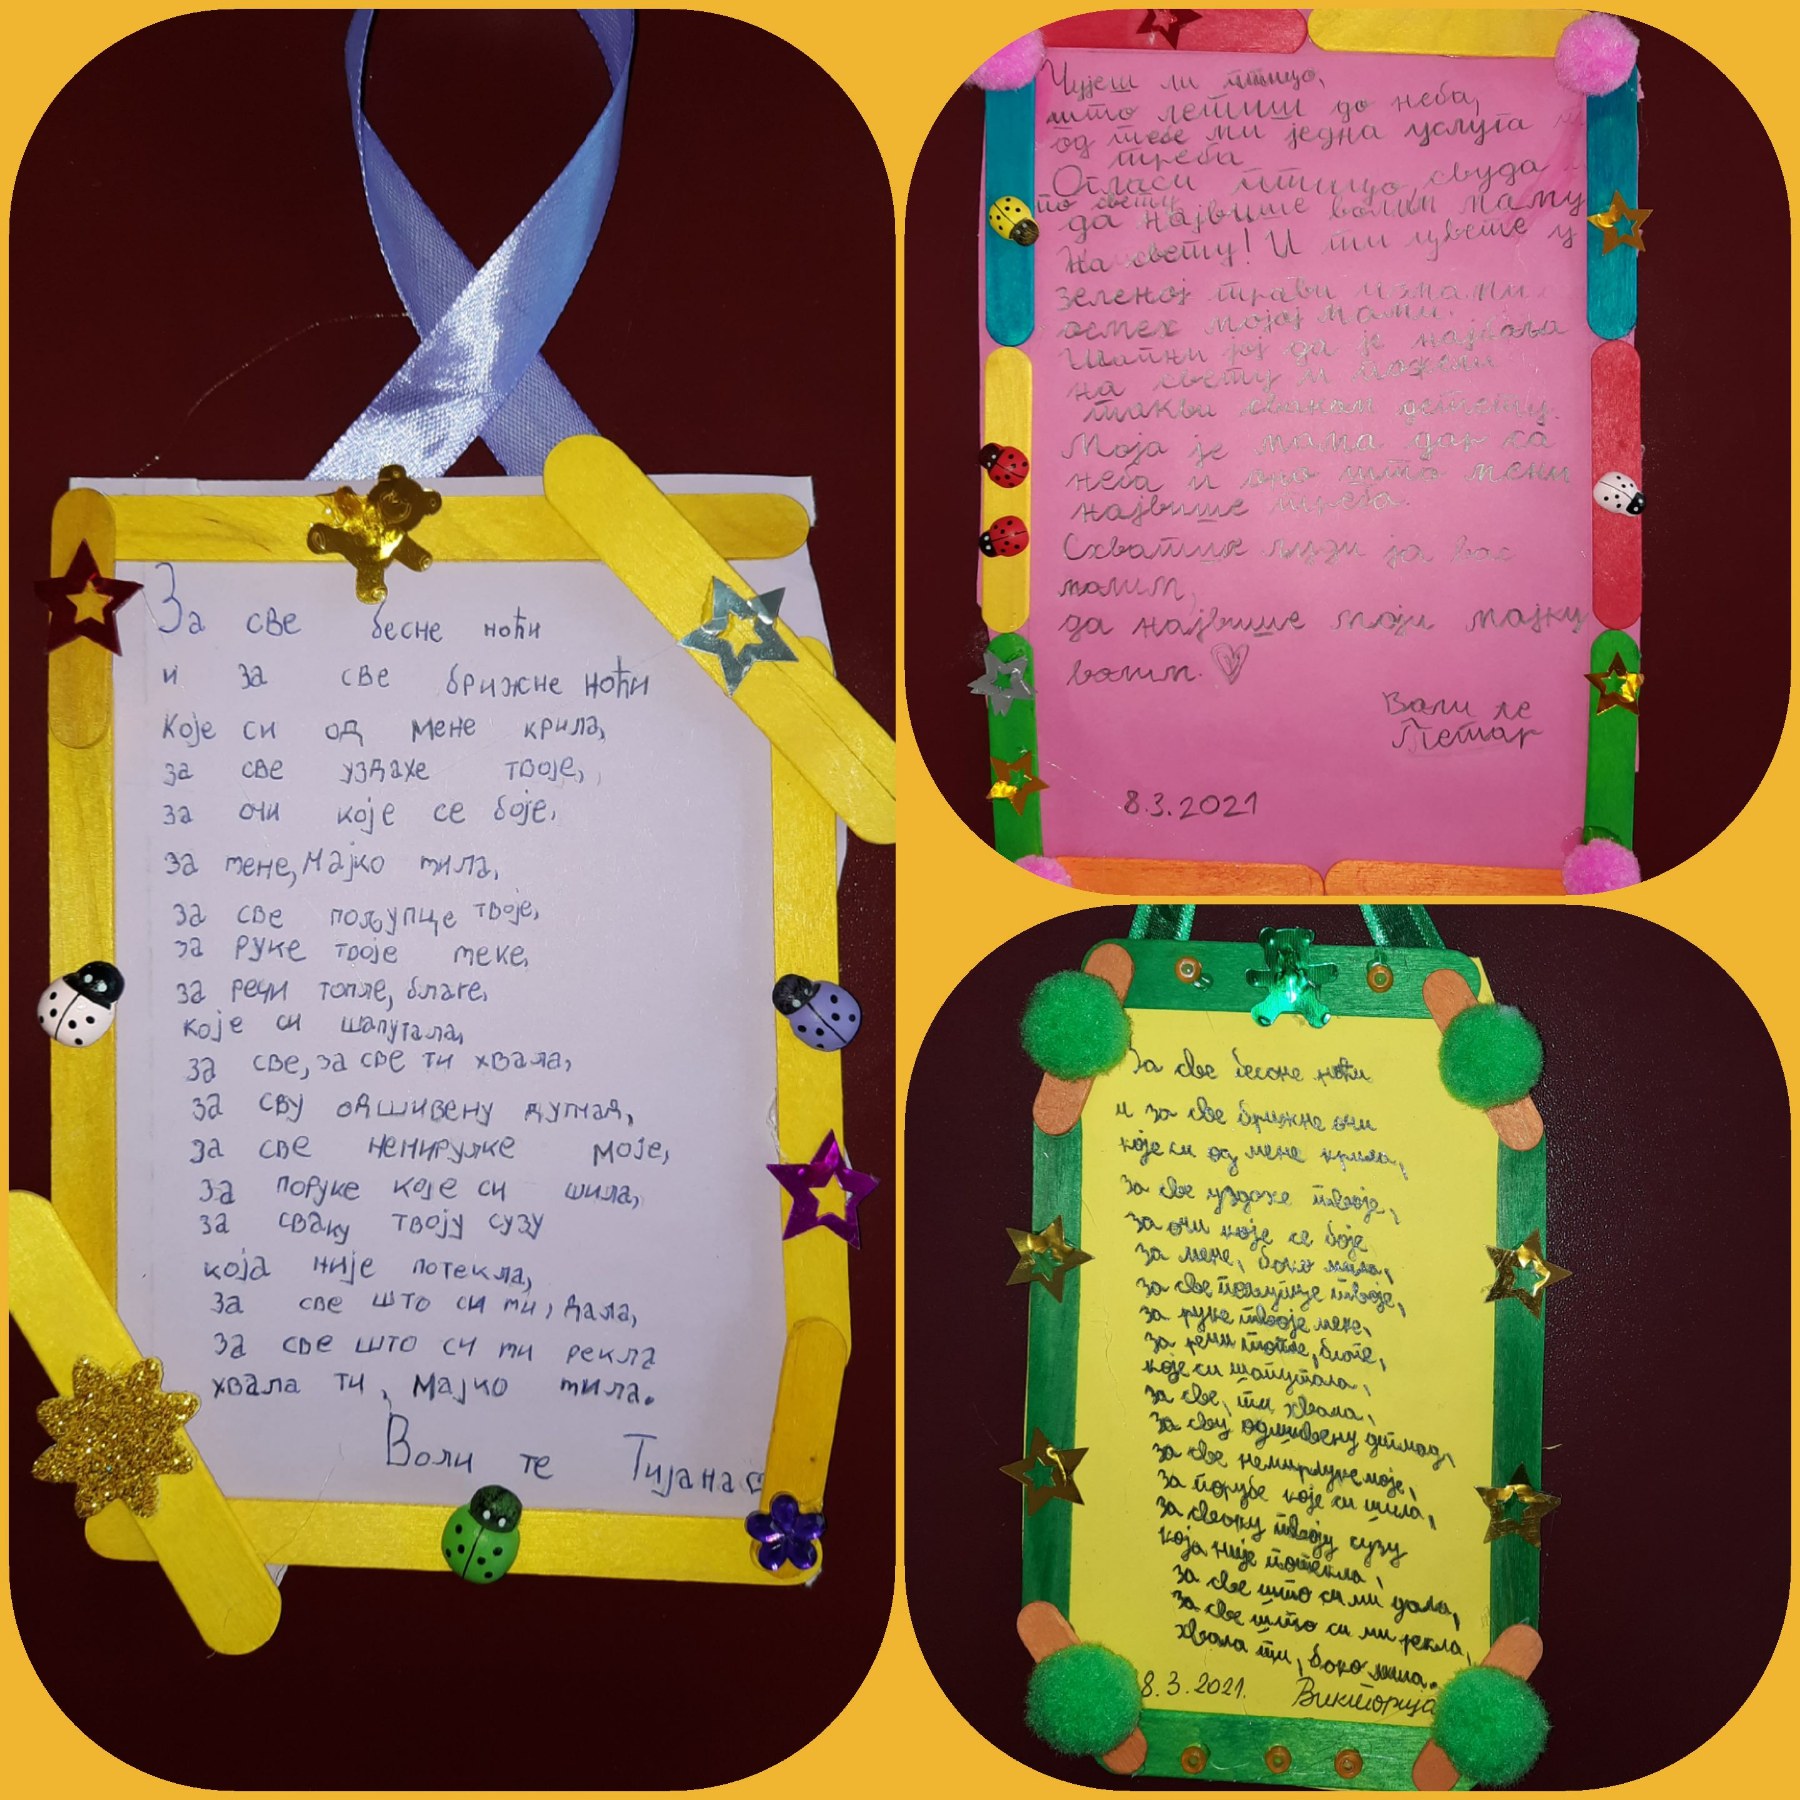 За све бесне ноћи
и за све брижне ноћи
Које си од мене крила,
за све уздахе твоје,
за очи које се боје,
за мене, Мајко мила,
за све пољупце твоје,
за руке твоје меке,
за речи топле, благе,
које си шапутала,
за све, за све ти хвала,
за сву одшивену дугмад,
за све немирулке моје,
за поруке које си шила,
за сваку твоју сузу
која није потекла,
за све што си ми, дала,
за све што си ми рекла
хвала ти, Мајко мила.
Воли те Тијана
Чујеш ли птицо,
што летиш до неба,
од тебе ми једна услуга
треба
Огласи птицо, свуда
по свету
да највише волим маму
На свету! И ти цвете у
зеленој трави измами
осмех мојој мами.
Шапни јој да је најбоља
на свету и пожели
такви сваком детету.
Моја је мама дар са
неба и оно што мени
највише треба.
Схватите људи ја вас
молим,
да највише моји мајку
волим.
Воли те
Петар
8.3.2021
За све бесоне ноћи
и за све брижне очи
које си од мене крила,
за све уздахе твоје,
за очи које се боје
за мене, бако мила,
за све пољупце твоје,
за руке твоје меке,
за речи топле, благе,
које си шапутала,
за све, ти хвала,
за сву одшивену дугмад,
за све немирлуке моје,
за поруке које си шила,
за сваку твоју сузу
која није потекла,
за све што си ми дала,
за све што си ми рекла,
хвала ти, бако мила.
8.3.2021. Викторија